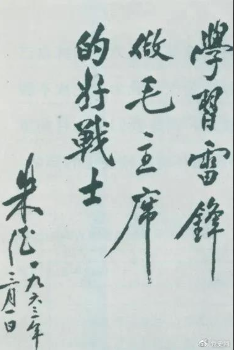 學習雷鋒
做毛主席
的好戰士
朱德
一九六三年
二月
日